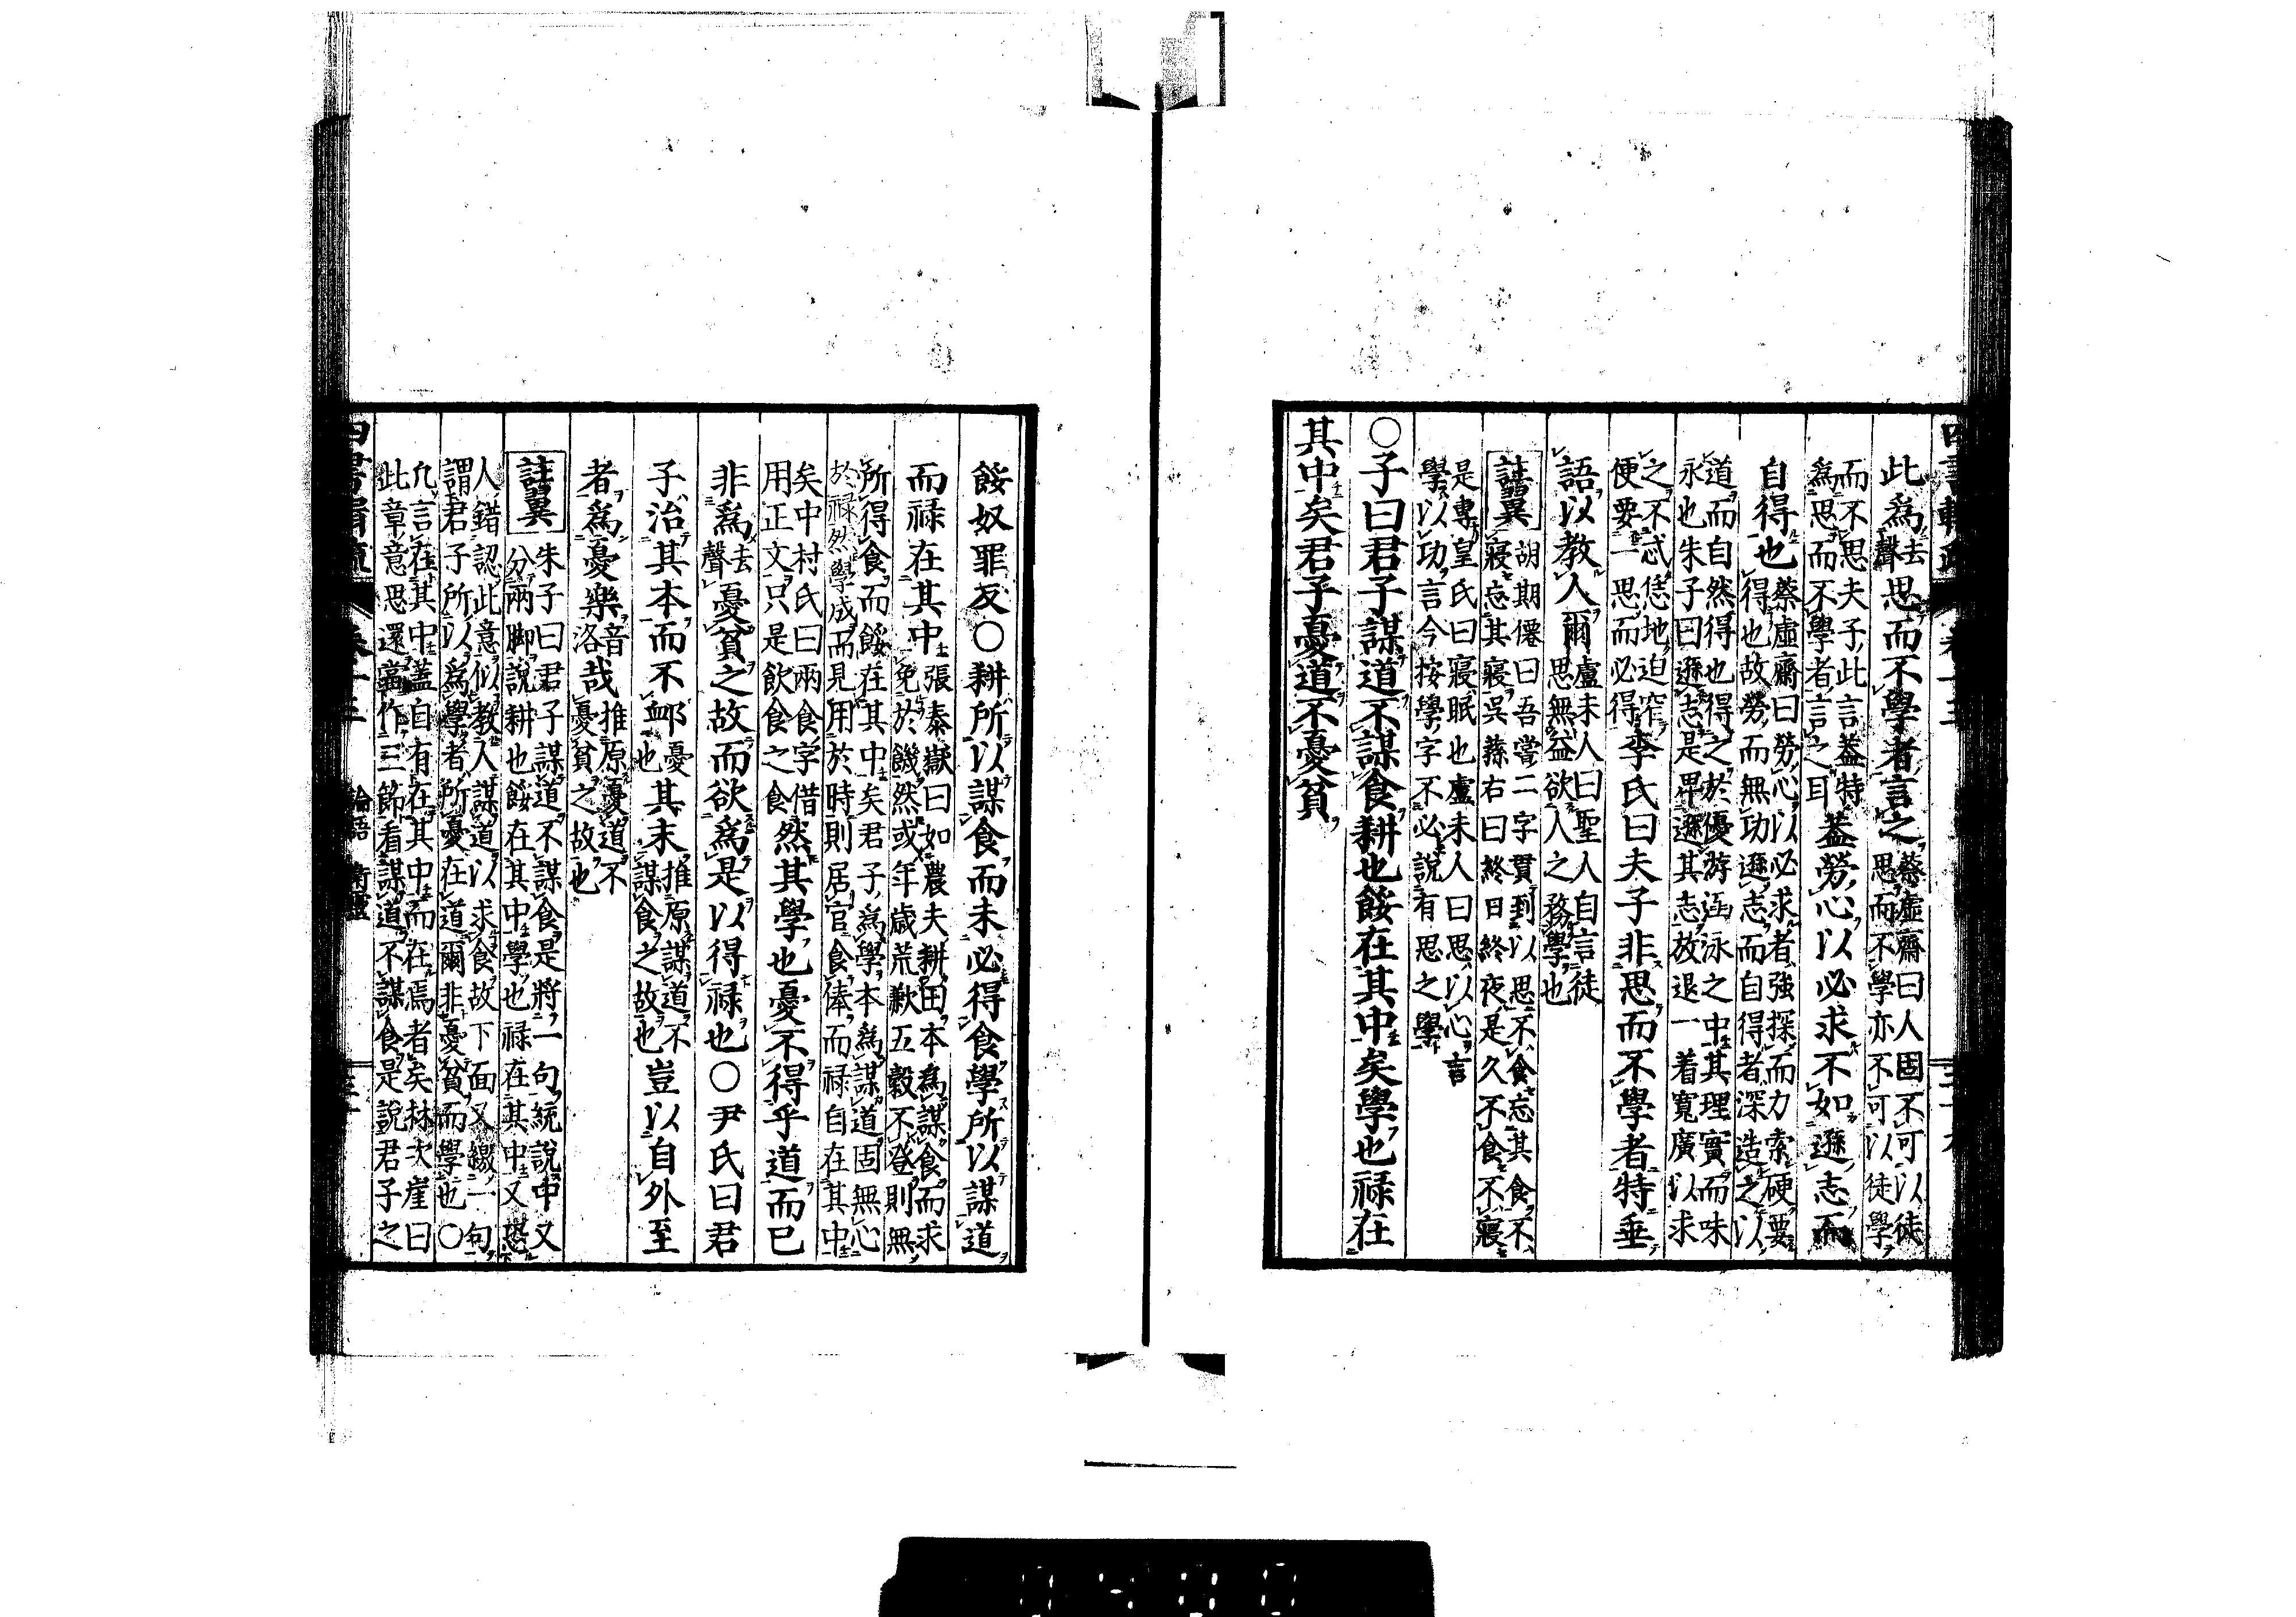 此為去聲思而不學者言之蔡虛齋曰人固不可以徒思而不學亦不可以徒學
而不思夫子此言蓋特為思而不學者言之耳蓋勞心以必求不如遜志而
自得也蔡虛齋曰勞心以必求者強探而力索硬要得也故勞而無功遜志而自得者深造之以
道而自然得也得之於優游涵泳之中其理實而味永也朱子曰遜志是卑遜其志放退一着寬廣以求
之不忒恁地迫窄便要一思而必得李氏曰夫子非思而不學者特垂
語以教人爾盧未人曰聖人自言徒思無益欲人之務學也
註翼胡期僊曰吾嘗二字貫到以思不食忘其食不寢忘其寢吳蓀右曰終日終夜是久不食不寢
是專皇氏曰寢眠也盧未人曰思以心言學以功言今按學字不必說有思之學
○子曰君子謀道不謀食耕也餒在其中矣學也祿在
其中矣君子憂道不憂貧
餒奴罪反○耕所以謀食而未必得食學所以謀道
而祿在其中張泰嶽曰如農夫耕田本為謀食而求免於饑然或年歲荒歉五穀不登則無
所得食而餒在其中矣君子為學本為謀道固無心於祿然學成而見用於時則居官食俸而祿自在其中
矣中村氏曰兩食字借用正文只是飲食之食然其學也憂不得乎道而已
非為去聲憂貧之故而欲為是以得祿也○尹氏曰君
子治其本而不卹憂也其末推原謀道不謀食之故也豈以自外至
者為憂樂音洛哉推原憂道不憂貧之故也
註翼朱子曰君子謀道不謀食是將一句統說中又分兩脚說耕也餒在其中學也祿在其中又恐
人錯認此意似教人謀道以求食故下面又繳一句謂君子所以為學者所憂在道爾非憂貧而學也○
凡言在其中蓋自有在其中而在焉者矣林次崖曰此章意思還當作三節看謀道不謀食是說君子之